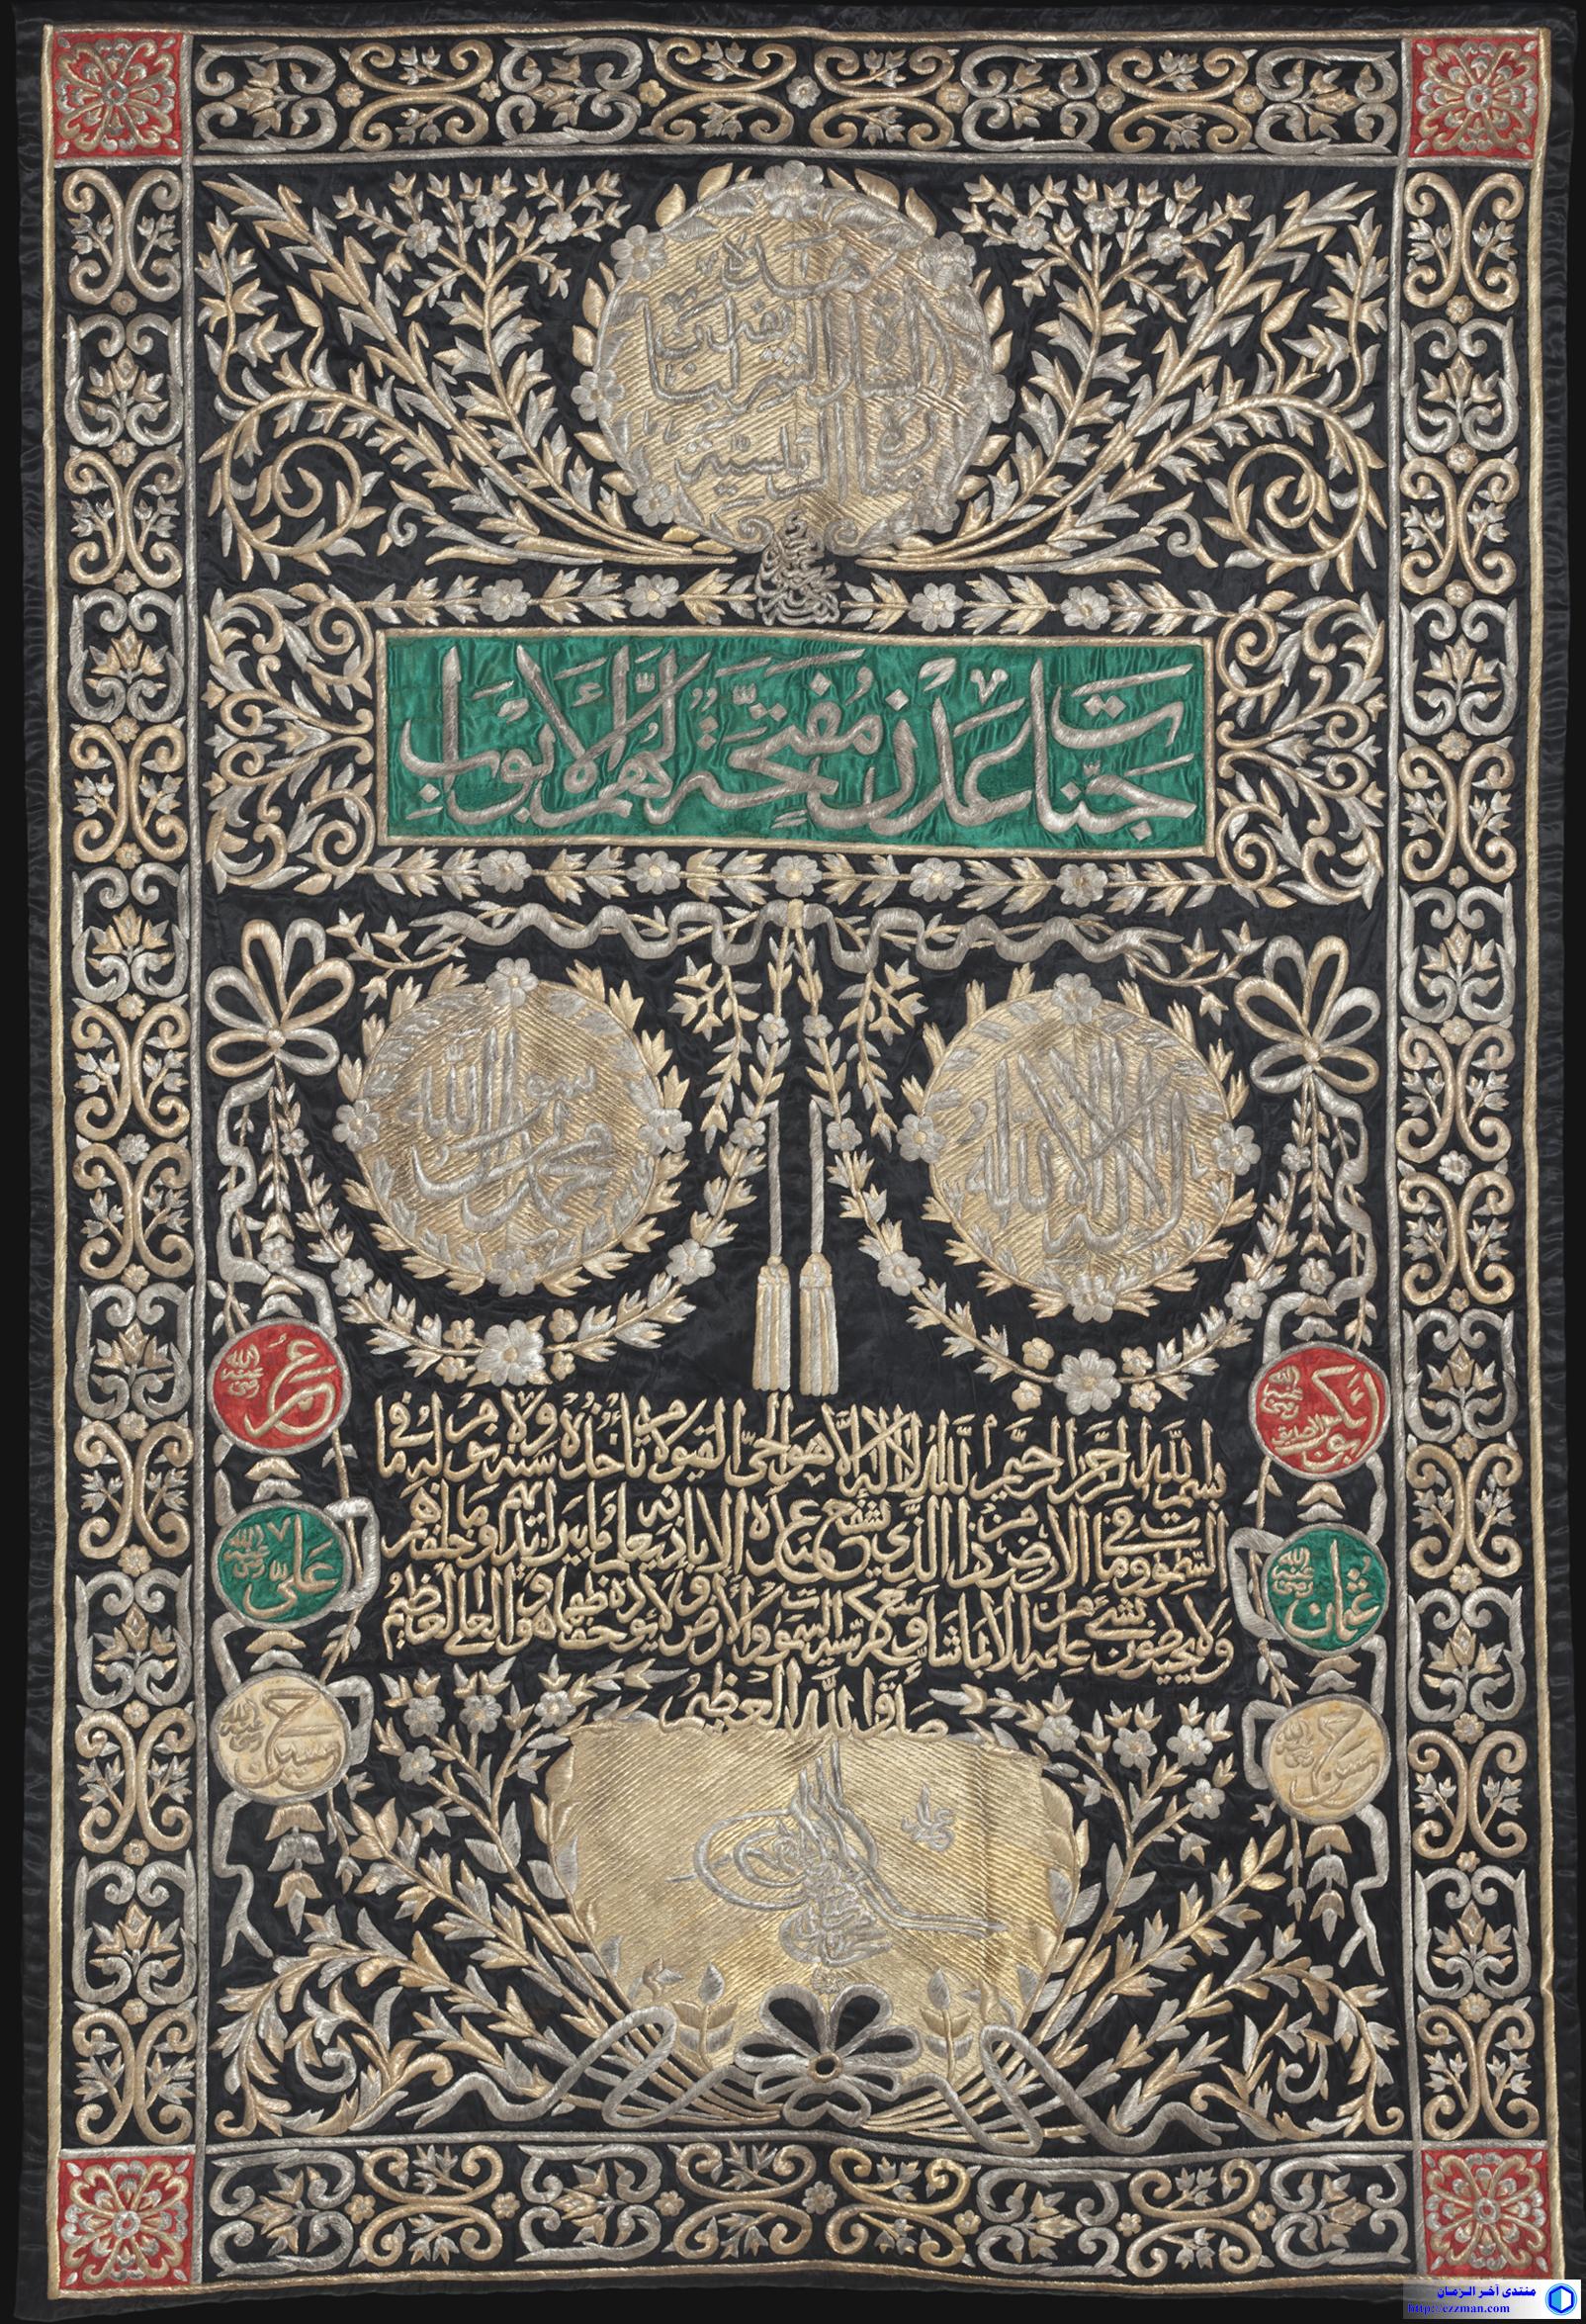 هذه
الستارة الشريفة
جنات عدن مفتحة لهم الأبواب
لا إله إلا الله
محمد رسول الله
أبو بكر الصديق رضي الله عنه
عمر رضي الله عنه
بسم الله الرحمن الرحيم الله لا إله إلا هو الحي القيوم لا تأخذه سنة ولا نوم له ما في
السموات وما في الأرض من ذا الذي يشفع عنده إلا بإذنه يعلم ما بين أيديهم وما خلفهم
ولا يحيطون بشيء من علمه إلا بما شاء وسع كرسيه السموات والأرض ولا يؤده حفظهما وهو العلي العظيم
صدق الله العظيم
عثمان رضي الله عنه
علي رضي الله عنه
حسن رضي الله عنه
حسين رضي الله عنه
منتدى آخر الزمان
http://ezzman.com